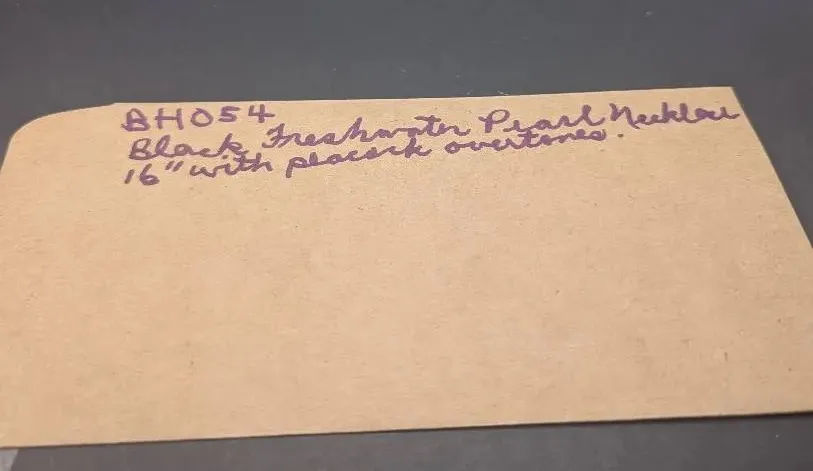 BH054
Black Freshwater Pearl Necklace
16" with peacock overtones.